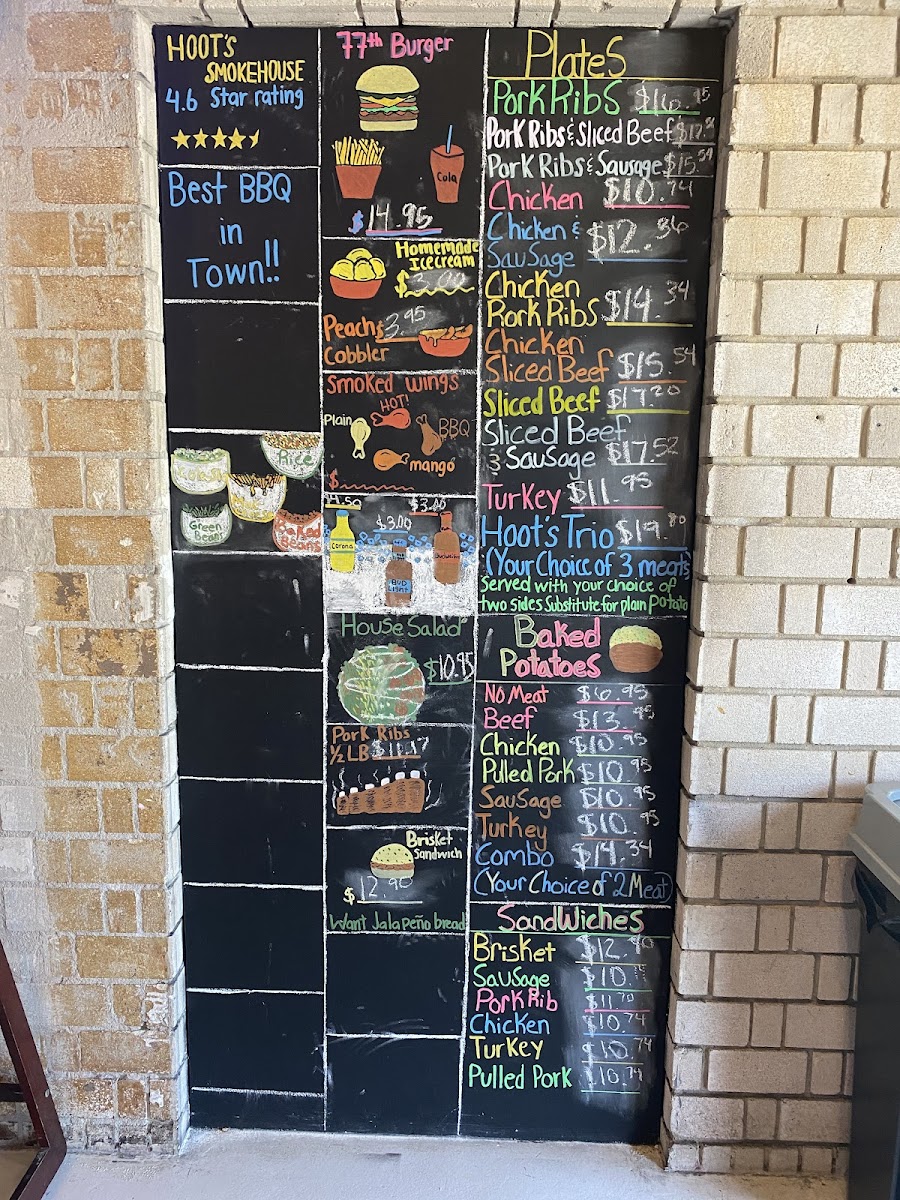 HOOT's
SMOKEHOUSE
4.6 Star rating
Best BBQ
in
Town!!
Rice
Green
Beans
Baked
Beans
77th Burger
Cola
$14.95
Homemade
Icecream
$3.00
Peach $3.95
Cobbler
Smoked wings
HOT!
Plain
BBQ
mango
$
$3.00
$3.00
Corona
BUD
LIGHT
House Salad
$10.95
Pork Ribs
½ LB $11.17
Brisket
Sandwich
$12.90
Want Jalapeño bread
Plates
Pork Ribs $16.95
Pork Ribs & Sliced Beef
Pork Ribs & Sausage $15.54
Chicken $10.74
Chicken &
Sausage $12.36
Chicken
Pork Ribs $14.34
Chicken
Sliced Beef $15.54
Sliced Beef $17.20
Sliced Beef
& Sausage $17.52
Turkey $11.95
Hoot's Trio $19.80
(Your Choice of 3 meats)
Served with your choice of
two sides Substitute for plain Potato
Baked
Potatoes
No Meat $6.95
Beef $13.95
Chicken $10.95
Pulled Pork $10.95
Sausage $10.95
Turkey $10.95
Combo $14.34
(Your Choice of 2 Meat)
Sandwiches
Brisket $12.90
Sausage
Pork Rib $11.70
Chicken $10.74
Turkey $10.74
Pulled Pork $10.74